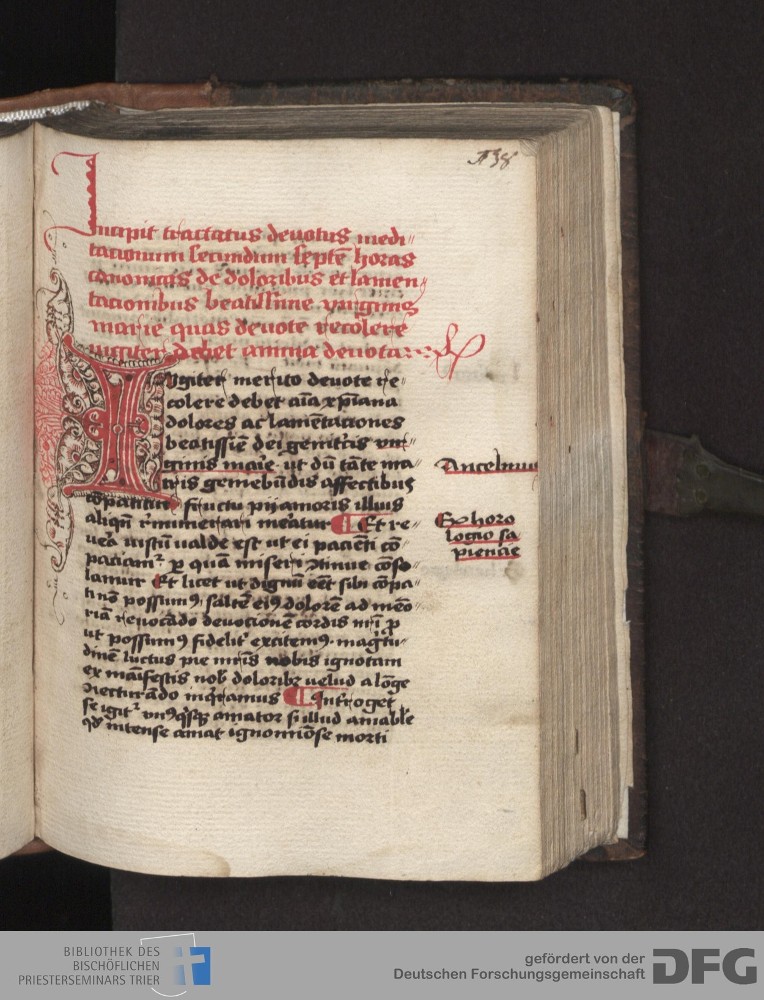 138
Incipit tractatus devotus medi-
tacionum secundum septē horas
canonicas de doloribus et lamen-
tacionibus beatissime virginis
marie quas devote recolere
iugiter debet anima devota
Iugiter merito devote re-
colere debet aīa xp̄iana
dolores ac lamētaciones
beatissiē dei genitricis vir-
ginis marie ut dū tāte ma-
tris gemebūdis affectibus
cōpatitur fructu pij amoris illius
aliqñ rīmunerari mereatur Et re-
vera iustū valde est ut ei pacienti cō-
paciamr p quā miseri ɔtinue cōso-
lamur Et licet ut dignū eēt sibi cōpa-
ti nō possumꝯ saltē eiꝯ dolorē ad meō-
riā revocādo devotionē cordis nrī p
ut possumꝯ fidelitr excitemꝯ magitu-
dinē luctus pie mr̄is nobis ignotam
ex māifestis nob doloribꝫ velud a lōge
ɔiecturādo inqramus Introget
se igitr vnꝯqsqꝫ amator si illud amable
qd intense amat ignominiōse morti
Ancelmus
Ex horo
logio sa
piencie
BIBLIOTHEK DES
BISCHÖFLICHEN
PRIESTERSEMINARS TRIER
gefördert von der
Deutschen Forschungsgemeinschaft
DFG